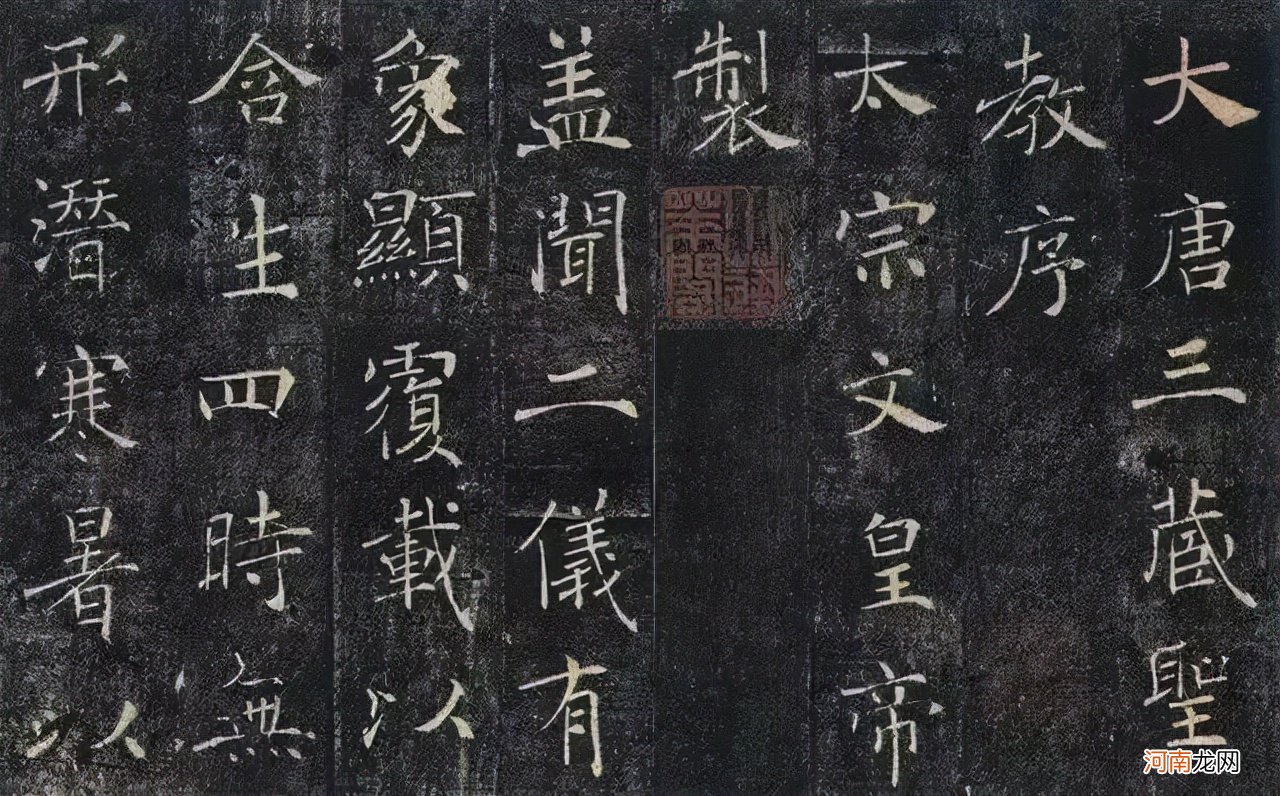 大唐三蔵聖
教序
太宗文皇帝
製
盖聞二儀有
象顯覆載以
含生四時無
形潛寒暑以
河南龙网